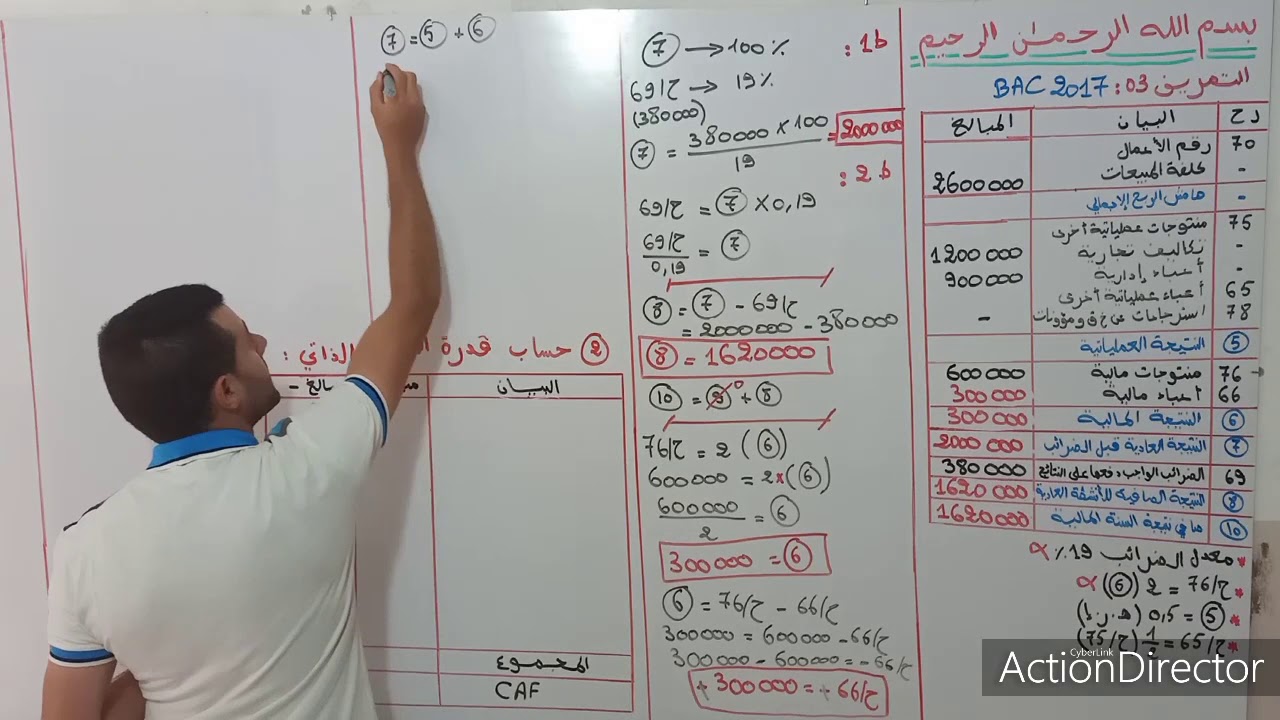 بسم الله الرحمان الرحيم
التمرين 03: BAC 2017
ر ح البيان المبالغ
70 رقم الأعمال
- تكلفة المبيعات 2600000
- هامش الربح الإجمالي
75 منتوجات عملياتية أخرى
- تكاليف تجارية 1200000
- أعباء إدارية 900000
65 أعباء عملياتية أخرى
78 استرجاعات عن خ ق و مؤونات -
5 النتيجة العملياتية
76 منتوجات مالية 600000
66 أعباء مالية 300000
6 النتيجة المالية 300000
7 النتيجة العادية قبل الضرائب 2000000
69 الضرائب الواجب دفعها على النتائج 380000
8 النتيجة الصافية للأنشطة العادية 1620000
10 صافي نتيجة السنة المالية 1620000
* معدل الضرائب 19٪
* ح/76 = 2 (6)
* 5 = 0,5 (ه.ر.إ)
* ح/65 = 1/2 (ح/75)
ط1:
7 → 100٪
ح/69 → 19٪
(380000)
7 = 380000 × 100 / 19 = 2000000
ط2:
ح/69 = 7 × 0,19
ح/69 / 0,19 = 7
8 = 7 - ح/69
= 2000000 - 380000
8 = 1620000
10 = 9 + 8
0
ح/76 = 2 (6)
600000 = 2 × (6)
600000 / 2 = 6
300000 = 6
6 = ح/76 - ح/66
300000 = 600000 - ح/66
300000 - 600000 = - ح/66
+ 300000 = + ح/66
7 = 5 + 6
2 حساب قدرة الذاتي:
البيان
المجموع
CAF
CyberLink
ActionDirector